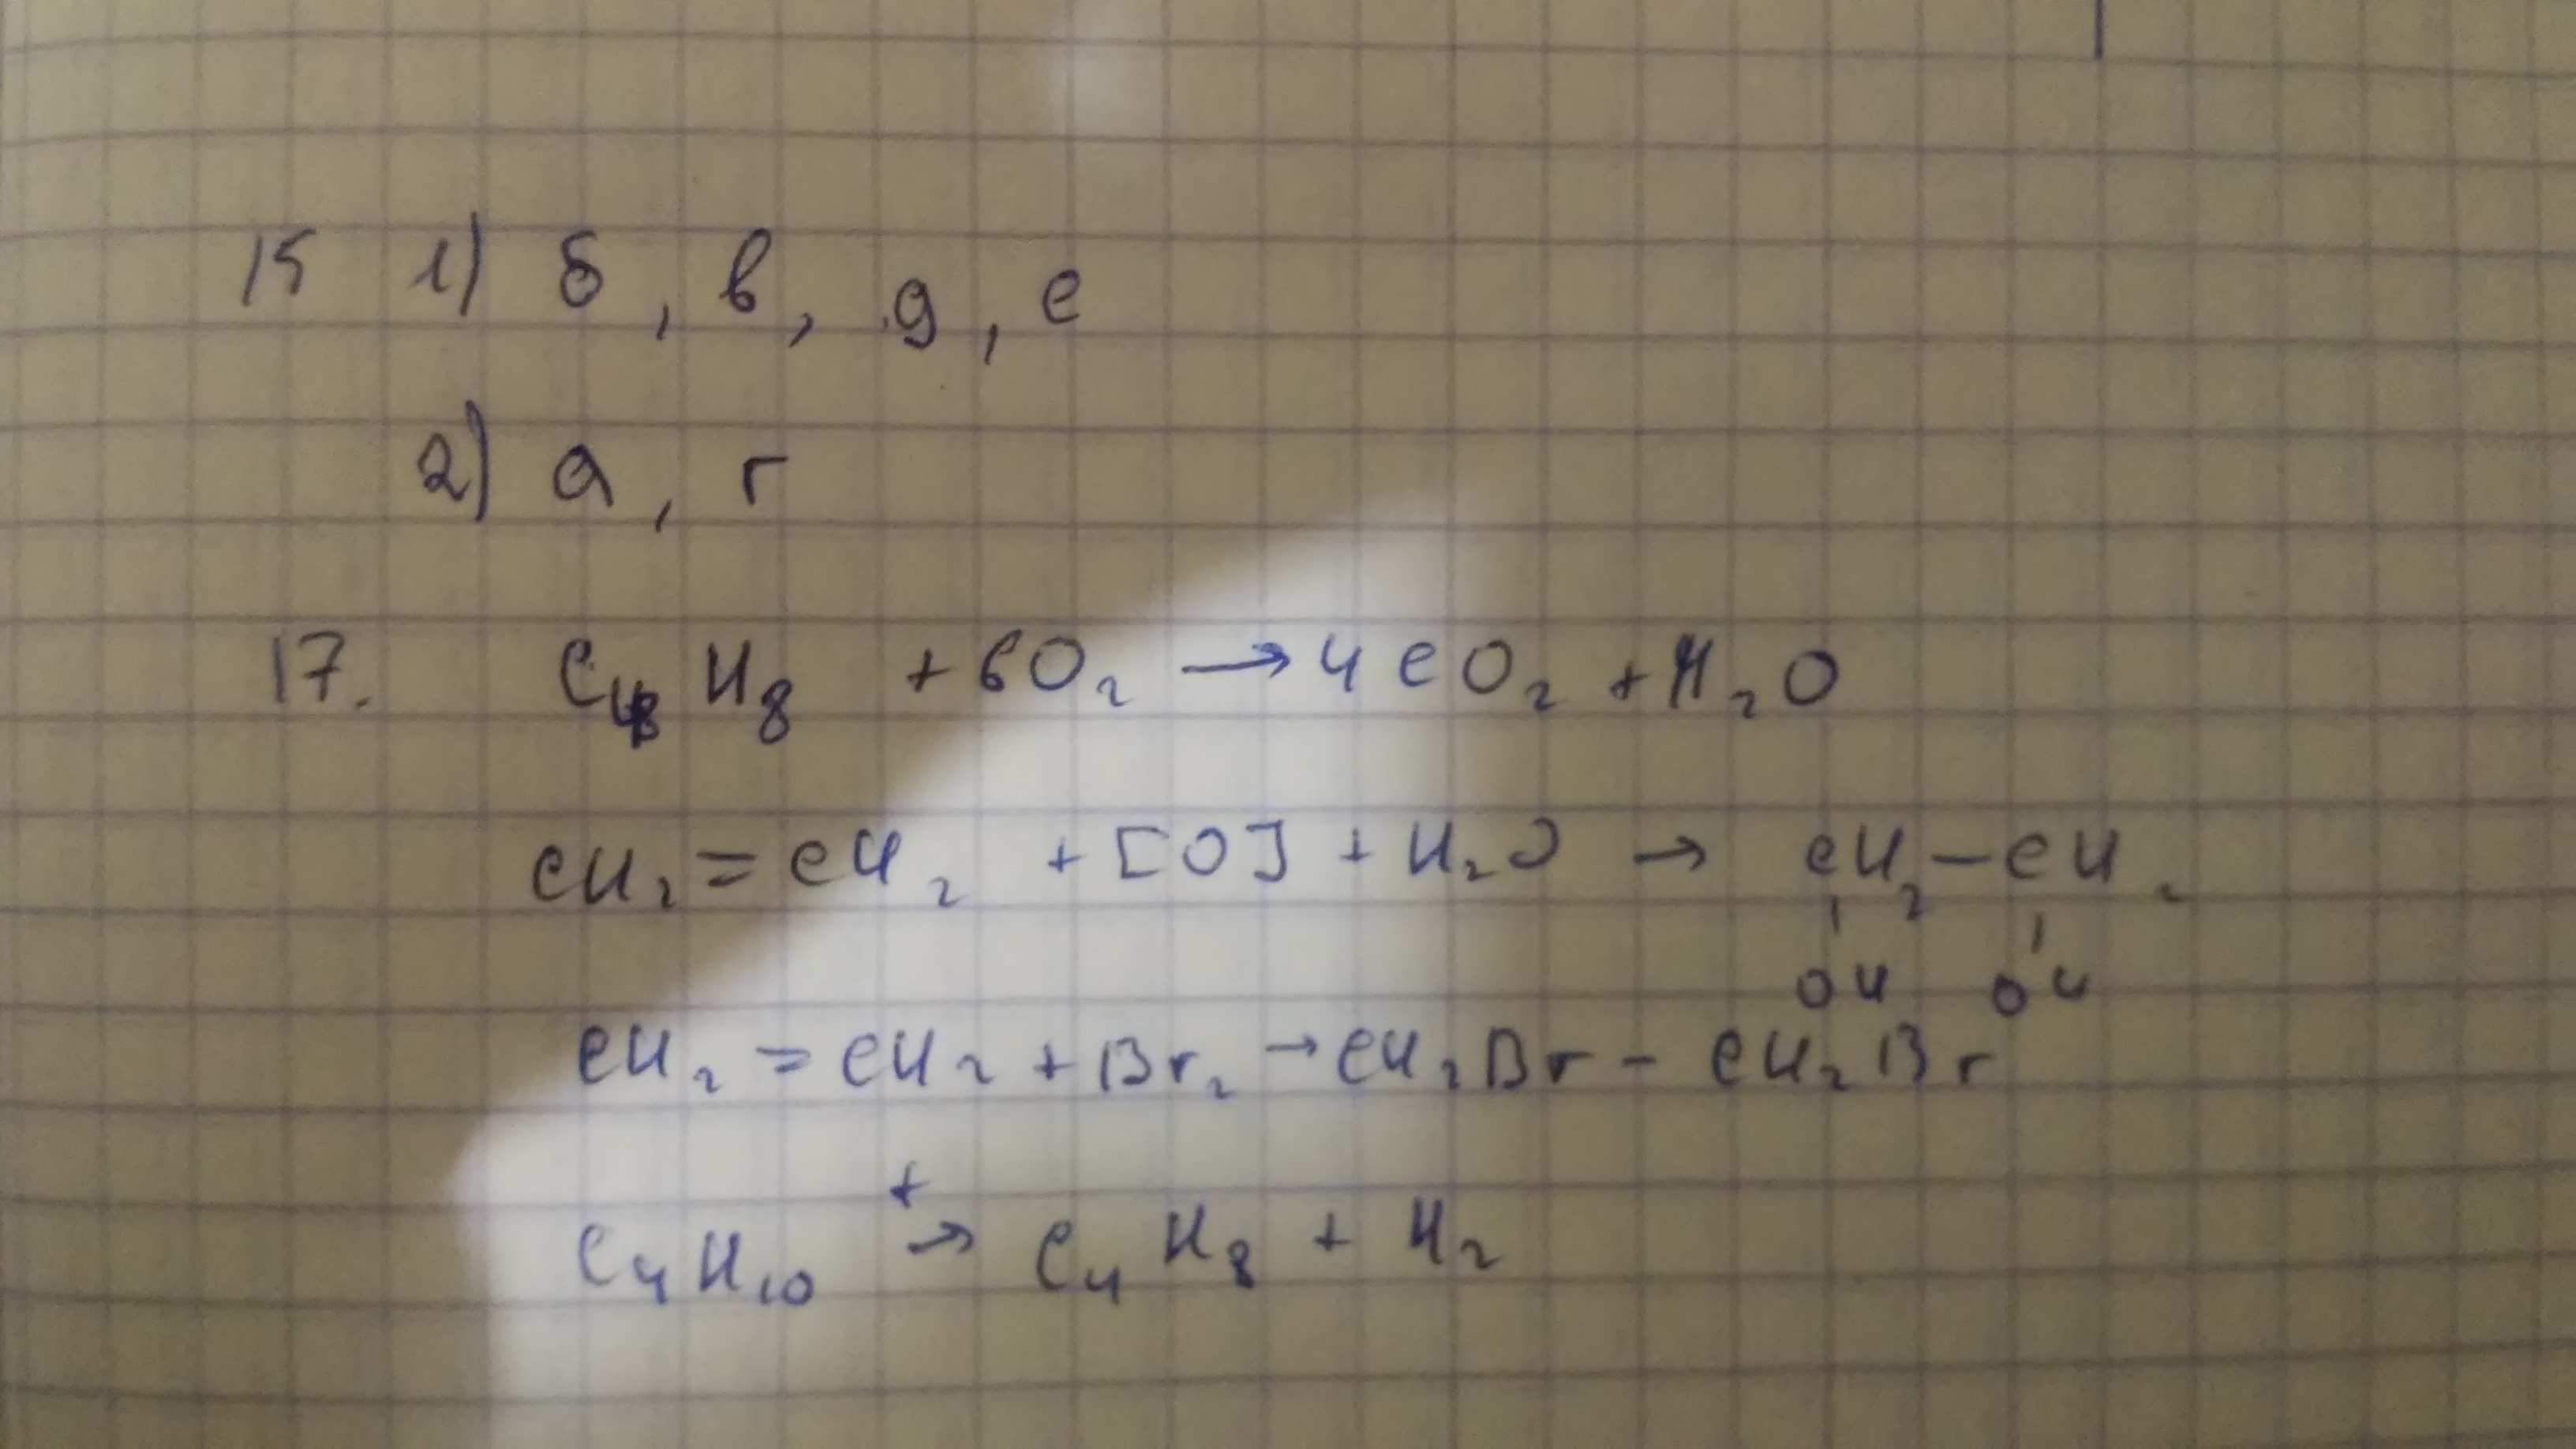 15 1) б, в, д, е
2) а, г
17. C₄H₈ + 6O₂ → 4CO₂ + H₂O
CH₂ = CH₂ + [O] + H₂O → CH₂ — CH₂
OH OH
CH₂ = CH₂ + Br₂ → CH₂Br - CH₂Br
t
C₄H₁₀ → C₄H₈ + H₂